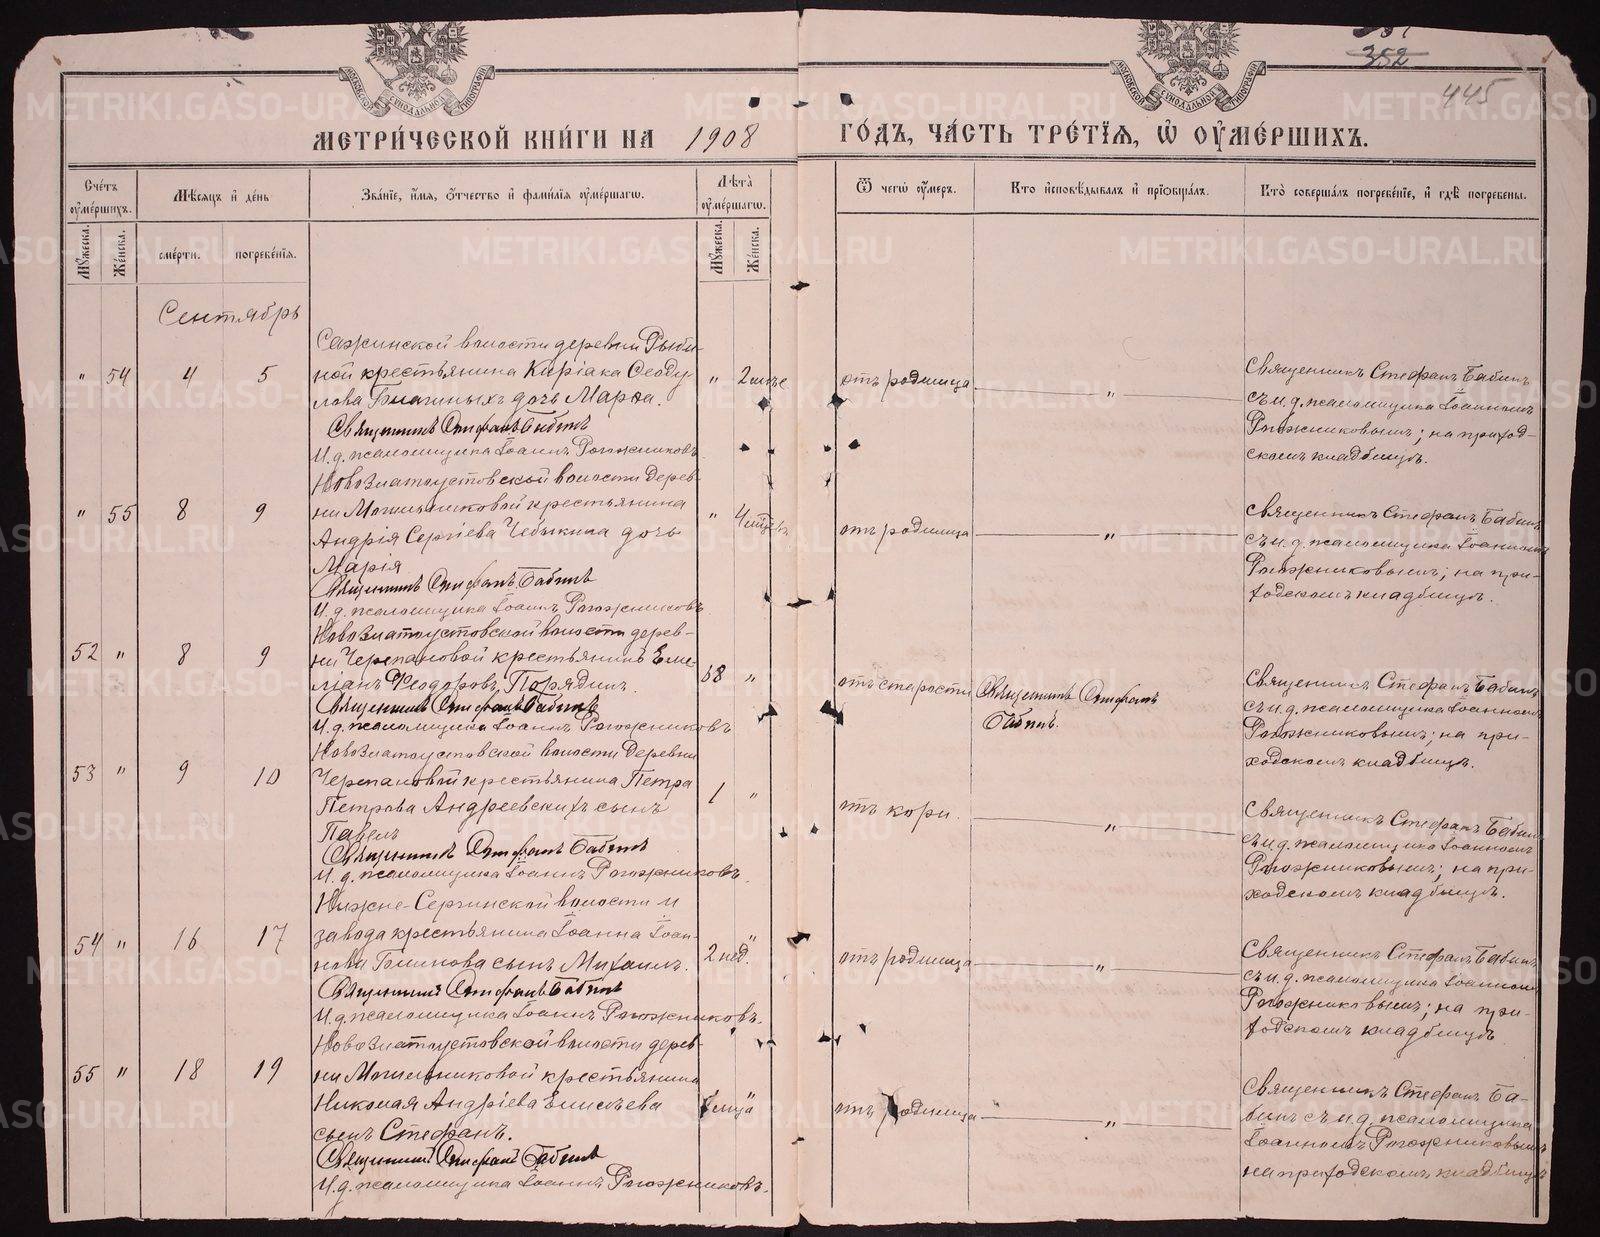 351
352
445
МОСКОВСКОЙ СѴНОДАЛЬНОЙ ТИПОГРАФІИ
МОСКОВСКОЙ СѴНОДАЛЬНОЙ ТИПОГРАФІИ
МЕТРИ́ЧЕСКОЙ КНИ́ГИ НА 1908 ГО́ДЪ, ЧА́СТЬ ТРЕ́ТІЯ, Ѡ ОУМЕ́РШИХЪ.
Сче́тъ оуме́ршихъ.
Мѣсяцъ и день
Зва́ніе, и́мя, о́тчество и фами́лія оуме́ршагѡ.
Лѣта̀ оуме́ршагѡ.
Ѿ чегѡ̀ оу́меръ.
Кто̀ исповѣ́дывалъ и пріѡбща́лъ.
Кто̀ соверша́лъ погребе́ніе, и гдѣ̀ погребены.
Мꙋ́жеска.
Же́нска.
сме́рти.
погребе́нія.
Мꙋ́жеска.
Же́нска.
Сентябрь
" 54 4 5
Сажинской волости деревни Рыбн-
ной крестьянина Киріака Ѳеоду-
лова Бичиныхъ дочь Марѳа.
Священникъ Стефанъ Бабинъ
И. д. псаломщика Іоаннъ Рогожниковъ.
" 2 мѣс
отъ родимца
"
Священникъ Стефанъ Бабинъ
съ и. д. псаломщика Іоанномъ
Рогожниковымъ; на приход-
скомъ кладбищѣ.
" 55 8 9
Новозлатоустовской волости Дерев-
ни Могильниковой крестьянина
Андрія Сергіева Чебыкина дочь
Марія
Священникъ Стефанъ Бабинъ
И. д. псаломщика Іоаннъ Рогожниковъ
" 4
отъ родимца
"
Священникъ Стефанъ Бабинъ
съ и. д. псаломщика Іоанномъ
Рогожниковымъ; на при-
ходскомъ кладбищѣ.
52 " 8 9
Новозлатоустовской волости дерев-
ни Черепановой крестьянинъ Еме-
ліанъ Ѳеодоровъ Порядинъ.
Священникъ Стефанъ Бабинъ
И. д. псаломщика Іоаннъ Рогожниковъ
68 "
отъ старости
Священникъ Стефанъ
Бабинъ.
Священникъ Стефанъ Бабинъ
съ и. д. псаломщика Іоанномъ
Рогожниковымъ; на при-
ходскомъ кладбищѣ.
53 " 9 10
Новозлатоустовской волости Деревни
Черепановой крестьянина Петра
Петрова Андреевскихъ сынъ
Павелъ
Священникъ Стефанъ Бабинъ
И. д. псаломщика Іоаннъ Рогожниковъ.
1 "
отъ кори.
"
Священникъ Стефанъ Бабинъ
съ и. д. псаломщика Іоанномъ
Рогожниковымъ; на при-
ходскомъ кладбищѣ.
54 " 16 17
Нижне-Сергинской волости и
завода крестьянина Іоанна Іоан-
нова Голикова сынъ Михаилъ.
Священникъ Стефанъ Бабинъ
И. д. псаломщика Іоаннъ Рогожниковъ.
2 нед. "
отъ родимца
"
Священникъ Стефанъ Бабинъ
съ и. д. псаломщика Іоанномъ
Рогожниковымъ; на при-
ходскомъ кладбищѣ
55 " 18 19
Новозлатоустовской волости дерев-
ни Могильниковой крестьянина
Николая Андріева Елисѣева
сынъ Стефанъ.
Священникъ Стефанъ Бабинъ
И. д. псаломщика Іоаннъ Рогожниковъ.
мѣсяца "
отъ родимца
"
Священникъ Стефанъ Ба-
бинъ съ и. д. псаломщика
Іоанномъ Рогожниковымъ
на приходскомъ кладбищѣ
METRIKI.GASO-URAL.RU